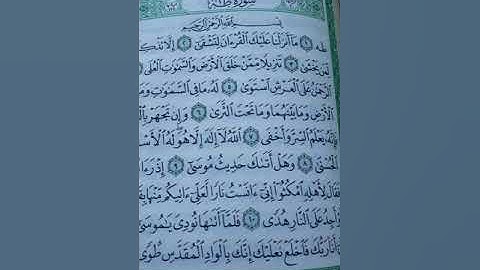 سُورَةُ طه
بِسْمِ اللَّهِ الرَّحْمَٰنِ الرَّحِيمِ
طه ١ مَا أَنزَلْنَا عَلَيْكَ الْقُرْءَانَ لِتَشْقَىٰ ٢ إِلَّا تَذْكِ
لِّمَن يَخْشَىٰ ٣ تَنزِيلًا مِّمَّنْ خَلَقَ الْأَرْضَ وَالسَّمَٰوَٰتِ الْعُلَى
الرَّحْمَٰنُ عَلَى الْعَرْشِ اسْتَوَىٰ ٥ لَهُ مَا فِي السَّمَٰوَٰتِ وَمَا
الْأَرْضِ وَمَا بَيْنَهُمَا وَمَا تَحْتَ الثَّرَىٰ ٦ وَإِن تَجْهَرْ بِالْ
فَإِنَّهُ يَعْلَمُ السِّرَّ وَأَخْفَى ٧ اللَّهُ لَا إِلَٰهَ إِلَّا هُوَ لَهُ الْأَسْ
الْحُسْنَىٰ ٨ وَهَلْ أَتَىٰكَ حَدِيثُ مُوسَىٰ ٩ إِذْ رَءَا
فَقَالَ لِأَهْلِهِ امْكُثُوا إِنِّي ءَانَسْتُ نَارًا لَّعَلِّي ءَاتِيكُم مِّنْهَا بِقَ
أَجِدُ عَلَى النَّارِ هُدًى ١٠ فَلَمَّا أَتَىٰهَا نُودِيَ يَٰمُوسَىٰ
أَنَا رَبُّكَ فَاخْلَعْ نَعْلَيْكَ إِنَّكَ بِالْوَادِ الْمُقَدَّسِ طُوًى